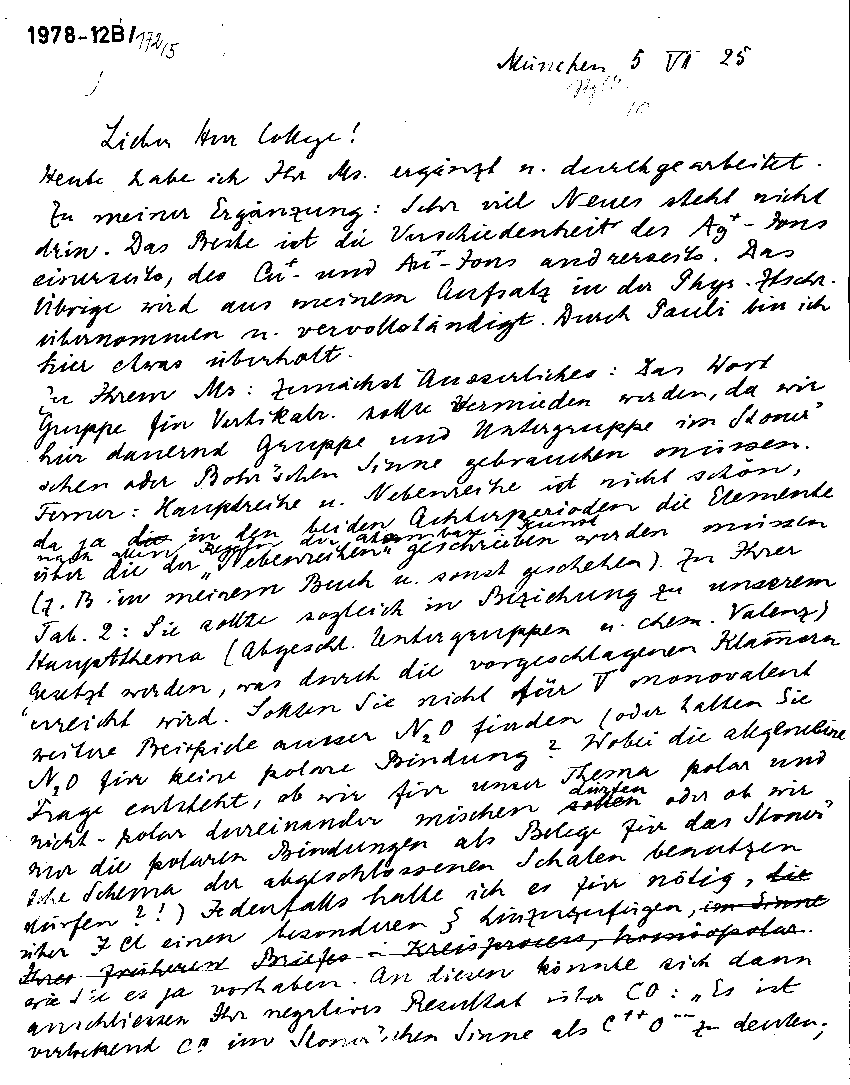 1978-12B/172/5
München 5 VI 25
Lieber Herr College!
Heute habe ich Ihr Ms. ergänzt u. durchgearbeitet.
Zu meiner Ergänzung: Sehr viel Neues steht nicht
drin. Das Beste ist die Verschiedenheit des Ag⁺-Ions
einerseits, des Cu⁺- und Au⁺-Ions andrerseits. Das
Übrige wird aus meinem Aufsatz in der Phys. Ztschr.
übernommen u. vervollständigt. Durch Pauli bin ich
hier etwas überholt.
Zu Ihrem Ms: Zunächst Äusserliches: Das Wort
Gruppe für Vertikalr. sollte vermieden werden, da wir
hier dauernd Gruppe und Untergruppe im Stoner'
schen oder Bohr'schen Sinne gebrauchen müssen.
Ferner: Hauptreihe u. Nebenreihe ist nicht schön,
da ja die in den beiden Achterperioden die Elemente
nach allen Regeln der Kunst
über die der „Nebenreihen" geschrieben werden müssen
(z. B in meinem Buch u. sonst geschehen). Zu Ihrer
Tab. 2: Sie sollte sogleich in Beziehung zu unserem
Hauptthema (Abgeschl. Untergruppen u. chem. Valenz)
gesetzt werden, was durch die vorgeschlagenen Klammern
erreicht wird. Sollten Sie nicht für V monovalent
weitere Beispiele ausser N₂O finden (oder halten Sie
N₂O für keine polare Bindung? Wobei die allgemeine
Frage entsteht, ob wir für unser Thema polar und
nicht-polar durcheinander mischen sollen dürfen oder ob wir
nur die polaren Bindungen als Belege für das Stoner'
sche Schema der abgeschlossenen Schalen benutzen
dürfen?!) Jedenfalls halte ich es für nötig, die
über JCl einen besonderen § hinzuzufügen, im Sinne
Ihres früheren Briefes Kreisprocess, homöopolar.
wie Sie es ja vorhaben. An diesen könnte sich dann
anschliessen Ihr negatives Resultat über CO: „Es ist
verlockend CO im Stoner'schen Sinne als C⁺⁺O⁻⁻ zu deuten;